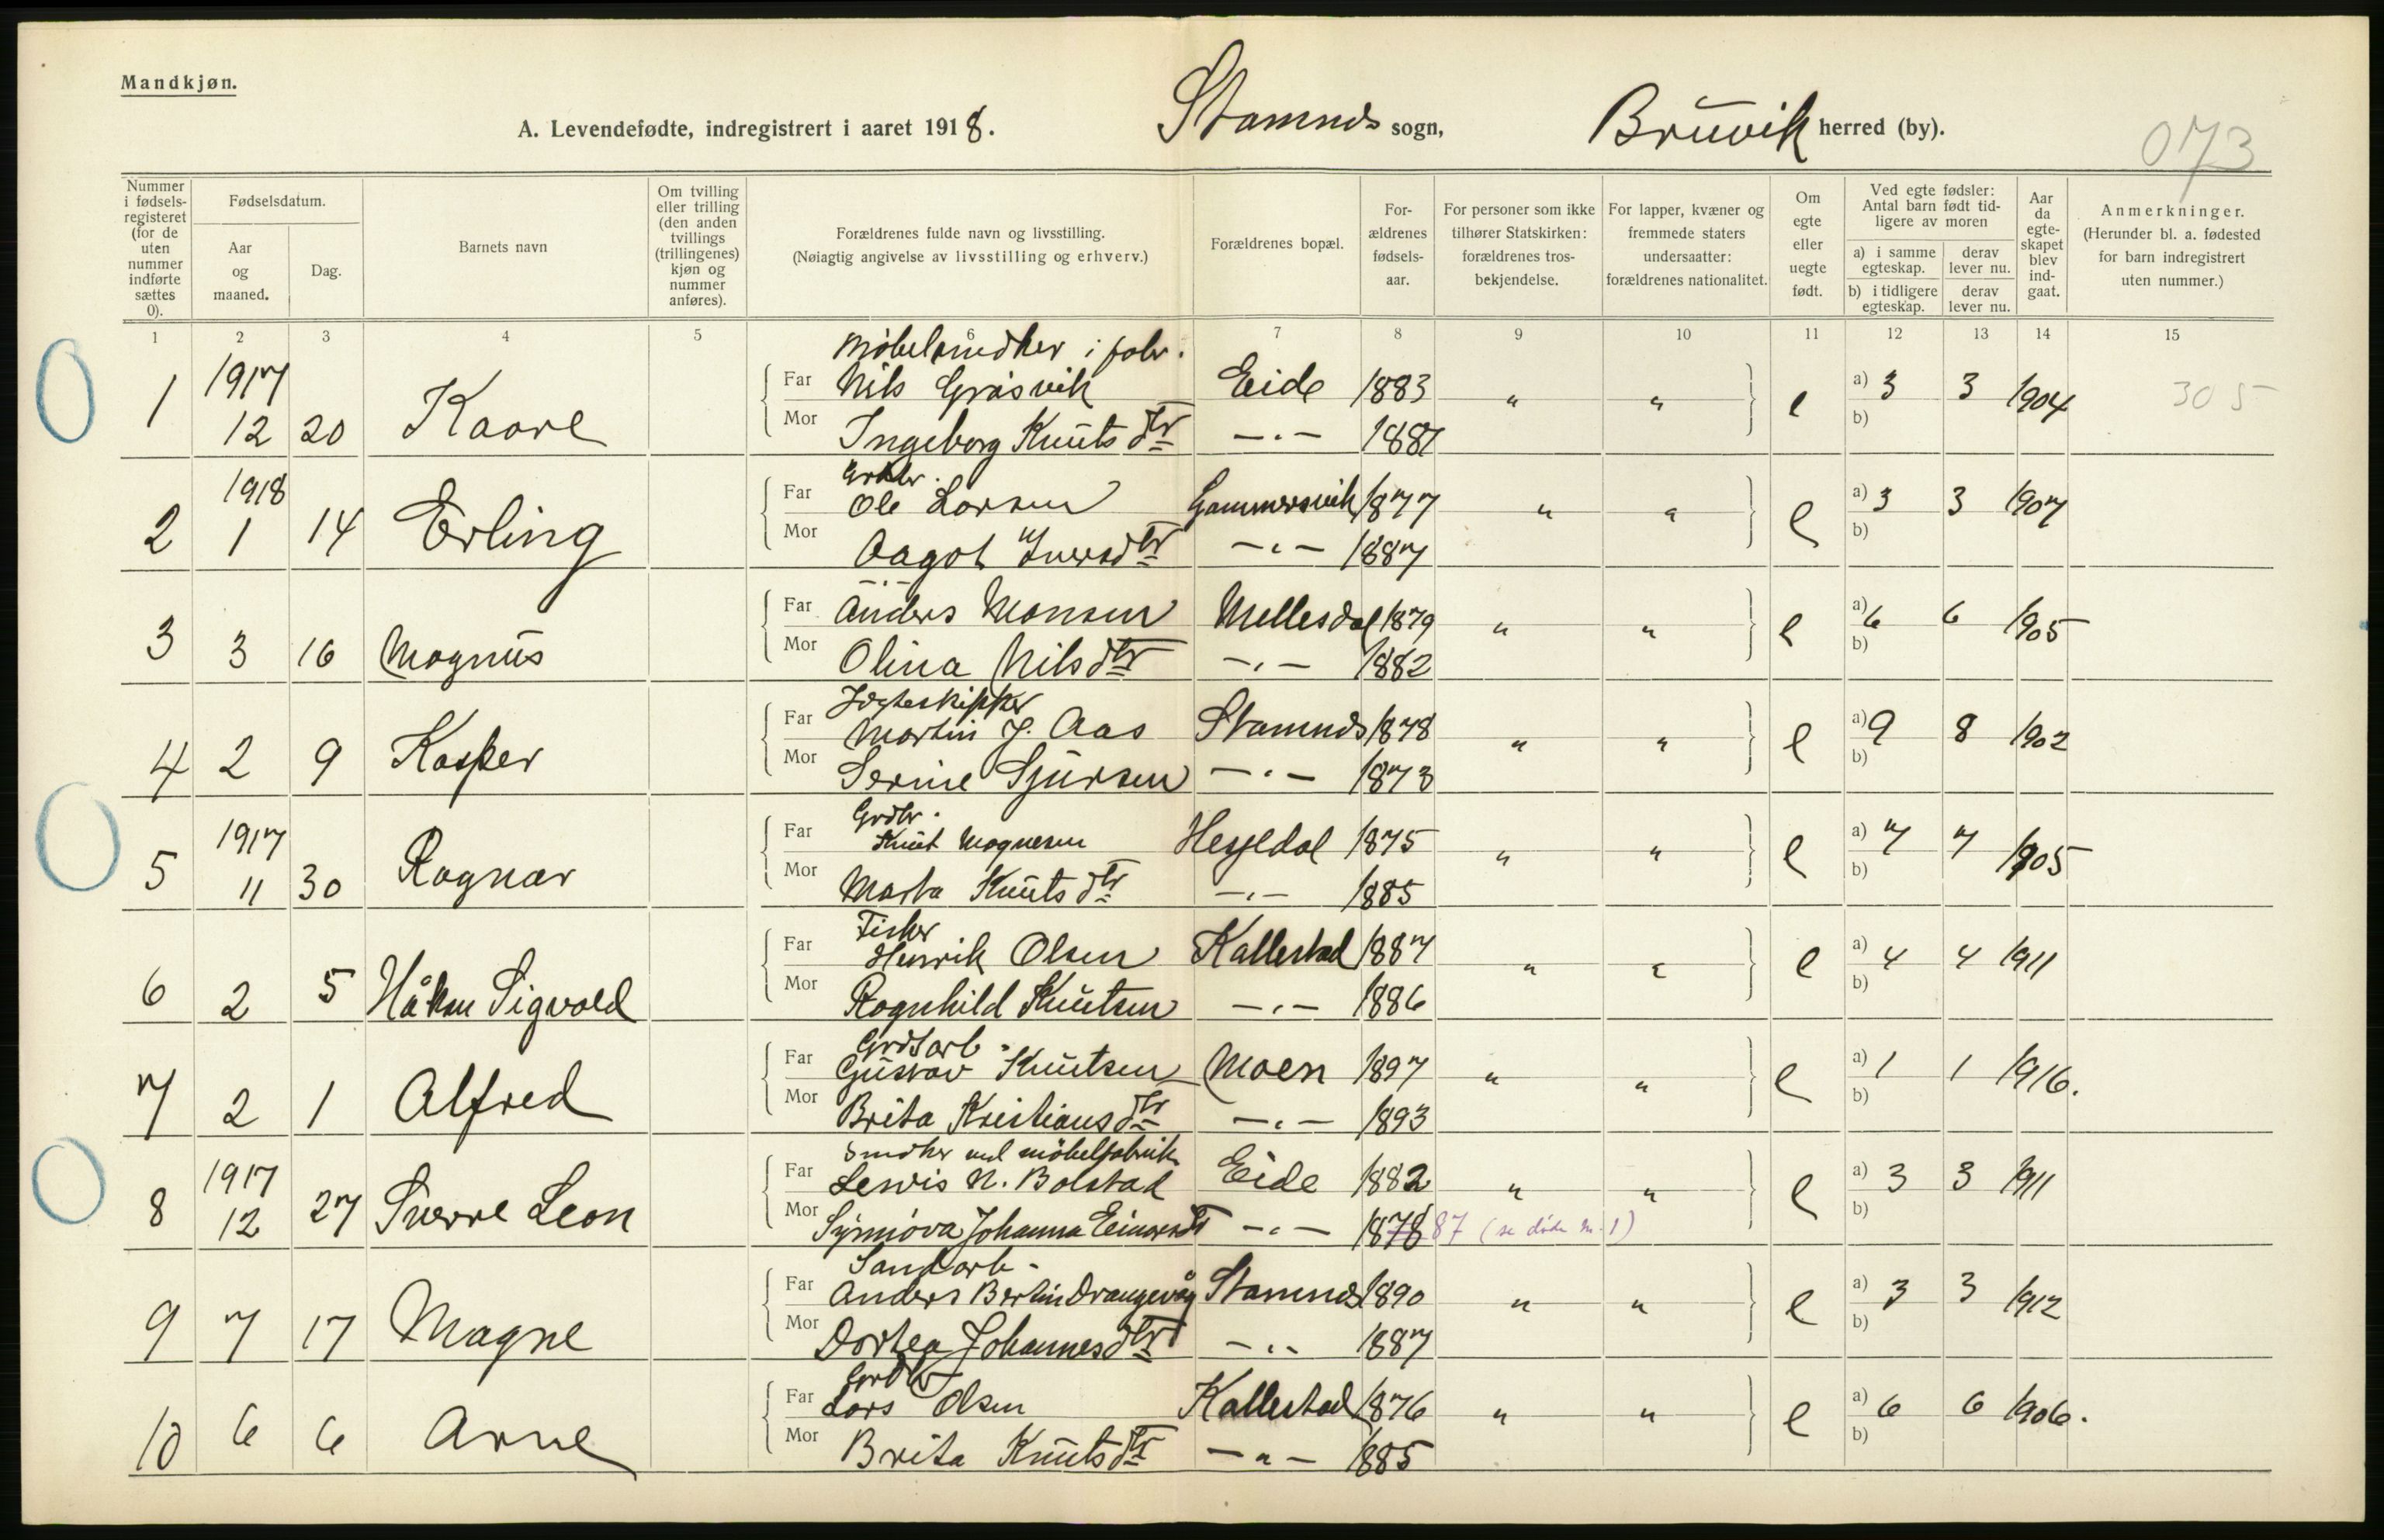 Mandkjøn.
A. Levendefødte, indregistrert i aaret 1918. Stamnes sogn, Bruvik herred (by). 073
Nummer i fødsels-registeret (for de uten nummer indførte sættes 0).
Fødselsdatum.
Aar og maaned.
Dag.
Barnets navn
Om tvilling eller trilling (den anden tvillings (trillingenes) kjøn og nummer anføres).
Forældrenes fulde navn og livsstilling.
(Nøiagtig angivelse av livsstilling og erhverv.)
Forældrenes bopæl.
For-ældrenes fødsels-aar.
For personer som ikke tilhører Statskirken: forældrenes tros-bekjendelse.
For lapper, kvæner og fremmede staters undersaatter: forældrenes nationalitet.
Om egte eller uegte født.
Ved egte fødsler: Antal barn født tid-ligere av moren
a) i samme egteskap. derav lever nu.
b) i tidligere egteskap. derav lever nu.
Aar da egte-skapet blev ind-gaat.
Anmerkninger.
(Herunder bl. a. fødested for barn indregistrert uten nummer.)
1 2 3 4 5 6 7 8 9 10 11 12 13 14 15
Møbelsnidker i fabr.
1 1917 Far Nils Gråsvik Eide 1883 " " e a) 3 3 1904 305
12 20 Kaare Mor Ingeborg Knutsdtr -"- 1881 b)
1918 Far Ole Larsen Gammersvik 1877 " " e a) 3 3 1907
2 1 14 Erling Mor Aagot Iversdtr -"- 1887 b)
Far Anders Monsen Mellesdal 1879 " " e a) 6 6 1905
3 3 16 Magnus Mor Olina Nilsdtr -"- 1882 b)
Jægteskipper
Far Martin J. Aas Stamnes 1878 " " e a) 9 8 1902
4 2 9 Kasper Mor Serine Sjursen -"- 1873 b)
Grdbr.
1917 Far Knut Magnesen Hesjedal 1875 " " e a) 7 7 1905
5 11 30 Ragnar Mor Marta Knutsdtr -"- 1885 b)
Fisker
Far Henrik Olsen Kallestad 1887 " " e a) 4 4 1911
6 2 5 Håkon Sigvald Mor Ragnhild Knutsen -"- 1886 b)
Grdsarb.
Far Gustav Knutsen Moen 1897 " " e a) 1 1 1916.
7 2 1 Alfred Mor Brita Kristiansdtr -"- 1893 b)
Snidker ved møbelfabrik
1917 Far Lewis N. Bolstad Eide 1882 " " e a) 3 3 1911
8 12 27 Sverre Leon Mor Synnøva Johanna Einarsdt -"- 1878 87 (se døde nr. 1) b)
Sandarb.
Far Anders Berlin Drangevåg Stamnes 1890 " " e a) 3 3 1912
9 7 17 Magne Mor Dortea Johannesdtr -"- 1887 b)
Grdbr
Far Lars Olsen Kallestad 1876 " " e a) 6 6 1906.
10 6 6 Arne Mor Brita Knutsdtr -"- 1885 b)